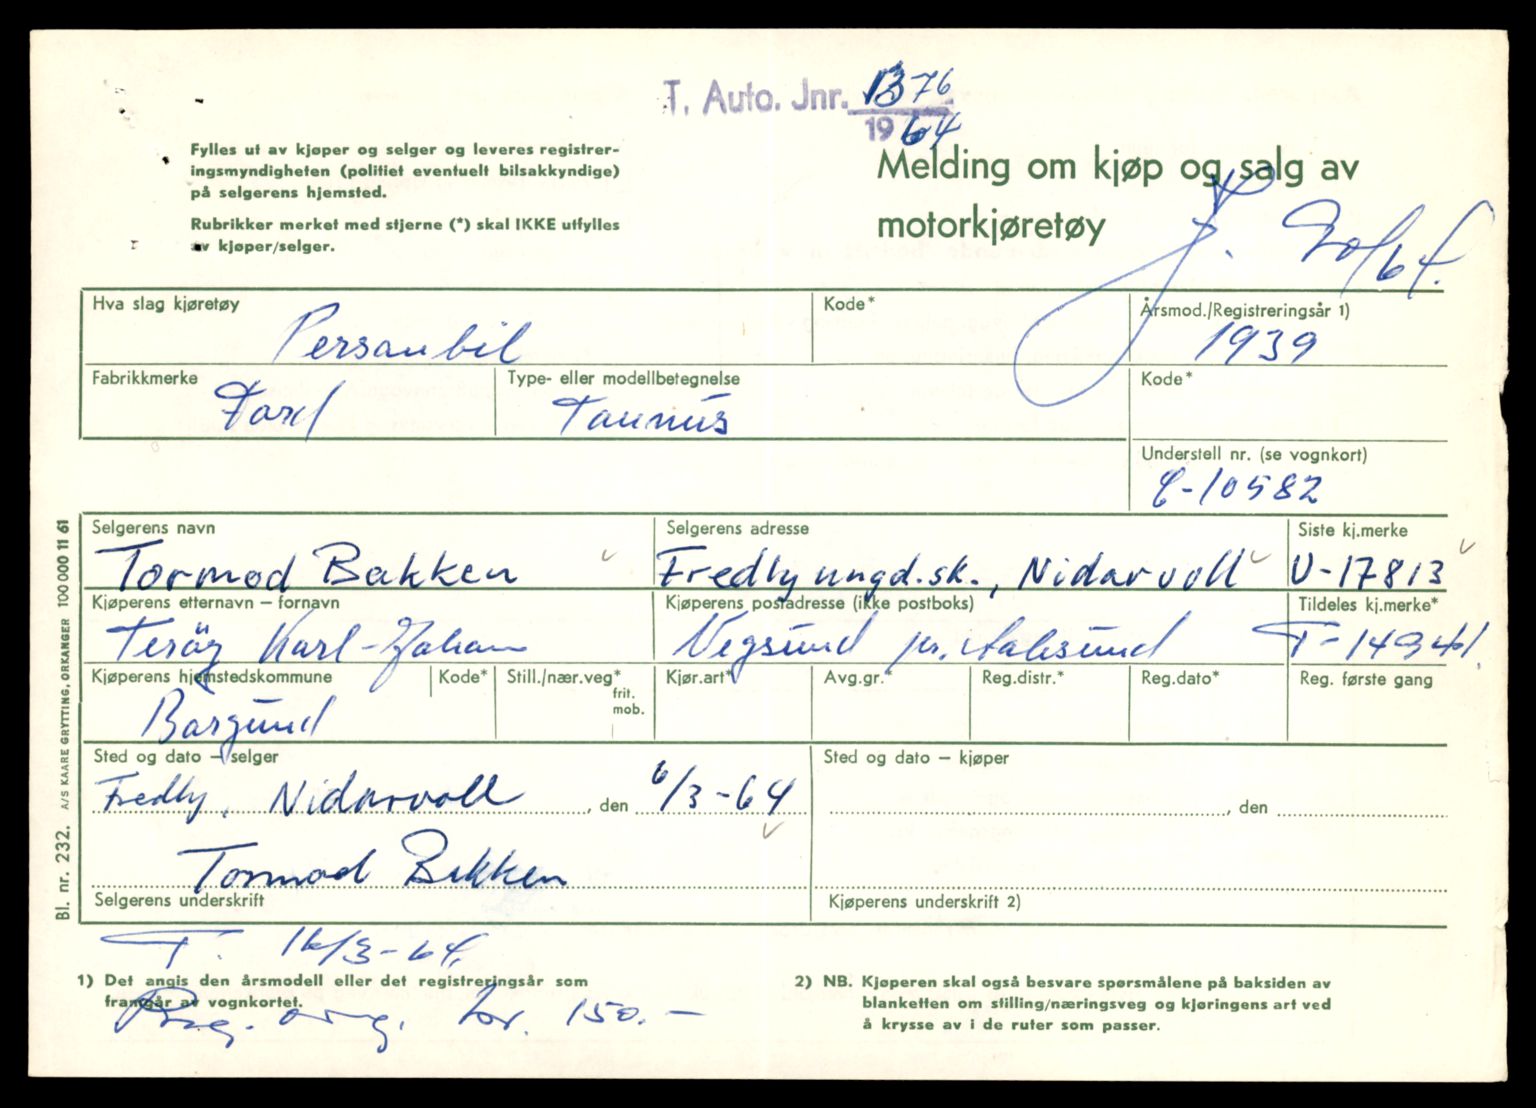 T. Auto. Jnr. 1376
1964
Fylles ut av kjøper og selger og leveres registrer-
ingsmyndigheten (politiet eventuelt bilsakkyndige)
på selgerens hjemsted.
Rubrikker merket med stjerne (*) skal IKKE utfylles
av kjøper/selger.
Melding om kjøp og salg av
motorkjøretøy
Hva slag kjøretøy
Kode*
Årsmod./Registreringsår 1)
Personbil
1939
Fabrikkmerke
Type- eller modellbetegnelse
Kode*
Ford
Taunus
Understell nr. (se vognkort)
C-10582
Selgerens navn
Selgerens adresse
Siste kj.merke
Tormod Bakken
Fredly ungd.sk., Nidarvoll
U-17813
Kjøperens etternavn – fornavn
Kjøperens postadresse (ikke postboks)
Tildeles kj.merke*
Karl-Johan
Vegsund pr. Aalesund
T-14941.
Kjøperens hjemstedskommune
Kode*
Still./nær.veg*
frit.
mob.
Kjør.art*
Avg.gr.*
Reg.distr.*
Reg.dato*
Reg. første gang
Borgund
Sted og dato – selger
Sted og dato – kjøper
Fredly, Nidarvoll, den 6/3-64
, den
Tormod Bakken
Selgerens underskrift
Kjøperens underskrift 2)
T. 16/3-64.
1) Det angis den årsmodell eller det registreringsår som
framgår av vognkortet.
Reg. avg. kr. 150.-
2) NB. Kjøperen skal også besvare spørsmålene på baksiden av
blanketten om stilling/næringsveg og kjøringens art ved
å krysse av i de ruter som passer.
Bl. nr. 232. A/S KAARE GRYTTING, ORKANGER 100 000 11 61